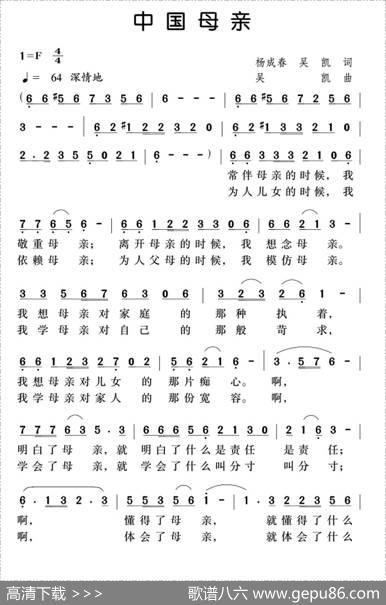 中国母亲
1=F 4/4
杨成春 吴凯 词
♩= 64 深情地
吴凯 曲
(6 6 #5 6 7 3 5 6 | 6 - - - | 6 6 #5 6 7 2 5 6 |
3 - - - | 6 2 #1 2 2 3 2 0 | 6 2 #1 2 2 3 2 0 |
2 · 2 3 5 5 0 2 1 | 6 - - - ) | 6 6 3 3 3 2 1 0 6 |
常伴母亲的时候，我
为人儿女的时候，我
7 7 6 5 6 - | 6 6 1 2 2 3 3 0 6 | 3 3 2 3 1 - |
敬重母亲； 离开母亲的时候，我 想念母亲。
依赖母亲； 为人父母的时候，我 模仿母亲。
3 3 5 6 7 6 3 0 6 | 3 2 3 2 6 1 - |
我想母亲对家庭的那种执着，
我学母亲对自己的那般苛求，
6 6 1 2 3 2 7 0 2 | 5 6 2 1 6 - | 3 · 5 7 6 - |
我想母亲对儿女的那片痴心。啊，
我学母亲对家人的那份宽容。啊，
7 7 7 6 3 5 · 3 | 7 7 7 6 5 6 7 2 | 3 · 2 3 5 6 - |
明白了母亲，就 明白了什么是责任 是责任；
学会了母亲，就 学会了什么叫分寸 叫分寸；
6 · 1 3 2 · 3 | 5 5 3 5 6 1 · 1 | 1 · 3 2 3 5 6 |
啊， 懂得了母亲， 就懂得了什么
啊， 体会了母亲， 就体会了什么
高清下载 >>>
歌谱八六 www.gepu86.com